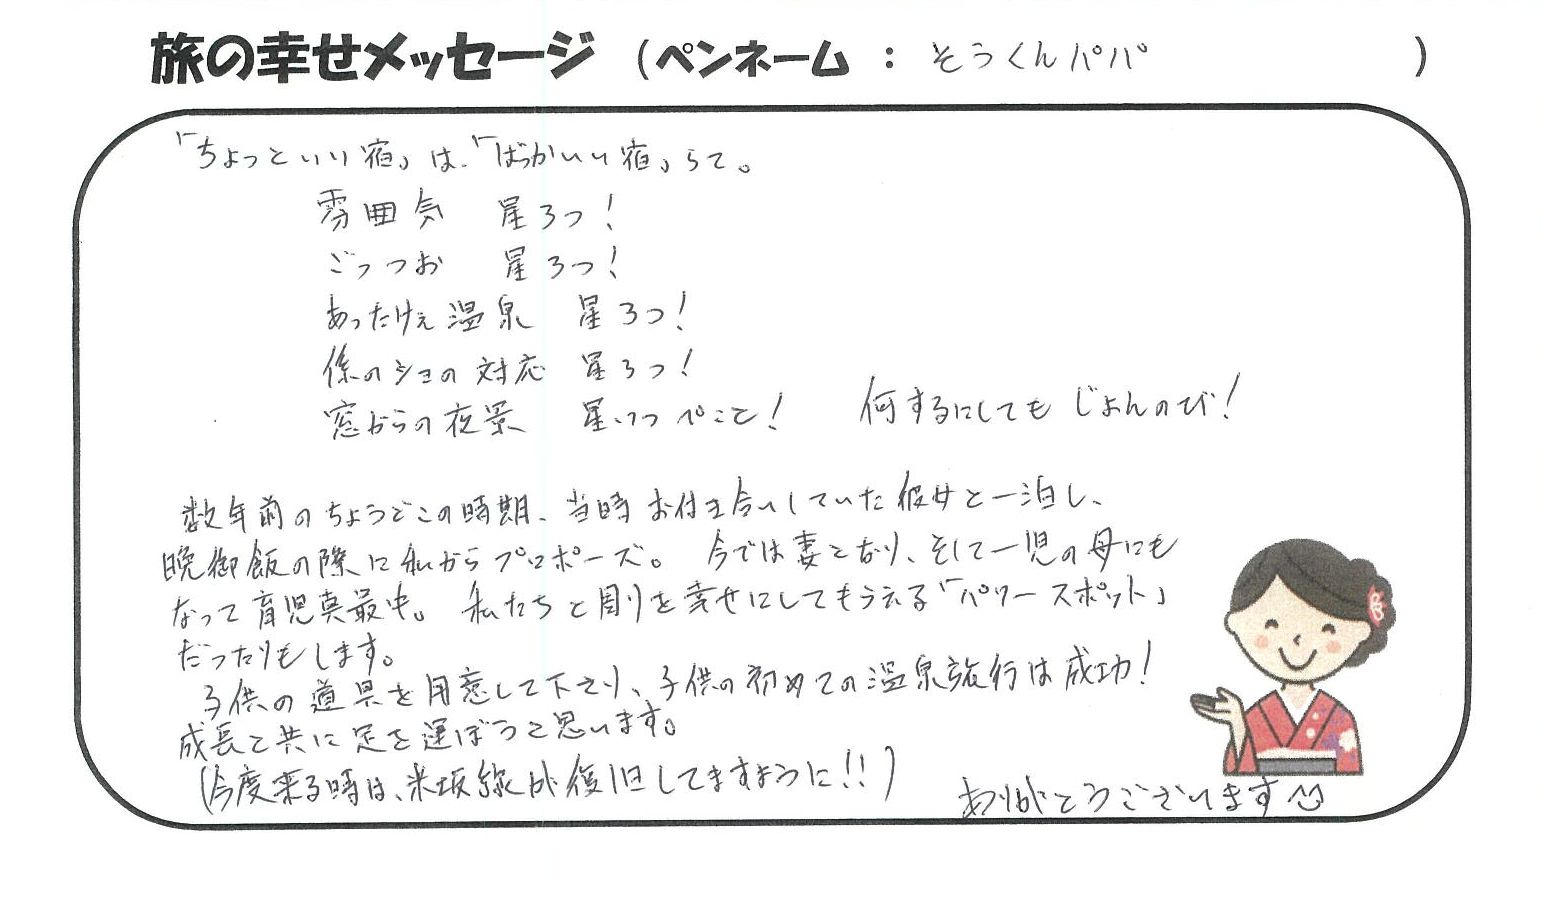 旅の幸せメッセージ (ペンネーム : そうくんパパ )
「ちょっといい宿」は、「ばっかいい宿」らて。
雰囲気 星3つ!
ごっつお 星3つ!
あったけぇ温泉 星3つ!
係のショの対応 星3つ!
窓からの夜景 星いつぺこと! 何するにしてもじょんのび!
数年前のちょうどこの時期、当時お付き合いしていた彼女と一泊し、
晩御飯の際に私からプロポーズ。 今では妻となり、そして一児の母にも
なって育児真最中。 私たちと周りを幸せにしてもらえる「パワースポット」
だったりもします。
子供の道具を用意して下さり、子供の初めての温泉旅行は成功!
成長と共に足を運ぼうと思います。
(今度来る時は、米坂線が復旧してますように!!)
ありがとうございます